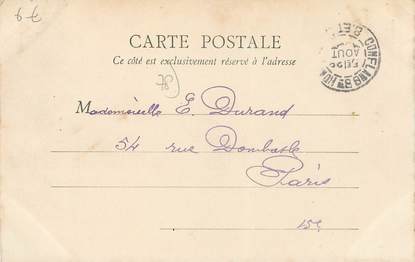 6-f
CARTE POSTALE
Ce côté est exclusivement réservé à l'adresse
(78)
Mademoiselle E. Durand
54 rue Dombasle
Paris
15e
CONFLANS
AOUT